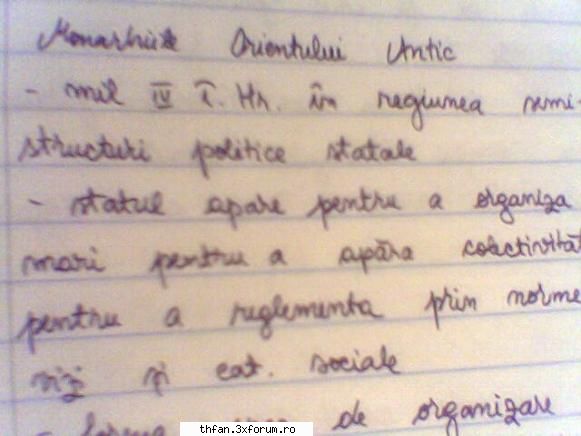 Monarhiile Orientului Antic
- mil IV î. Hr. în regiunea semi
structuri politice statale
- statul apare pentru a organiza
mari pentru a apăra colectivităț
pentru a reglementa prin norme
și cat. sociale
- forma de organizare
thfan.3xforum.ro